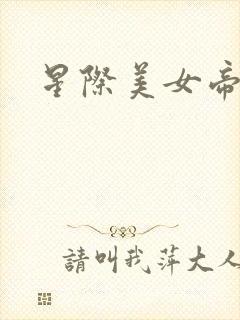 星際美女帝
請叫我萍大人